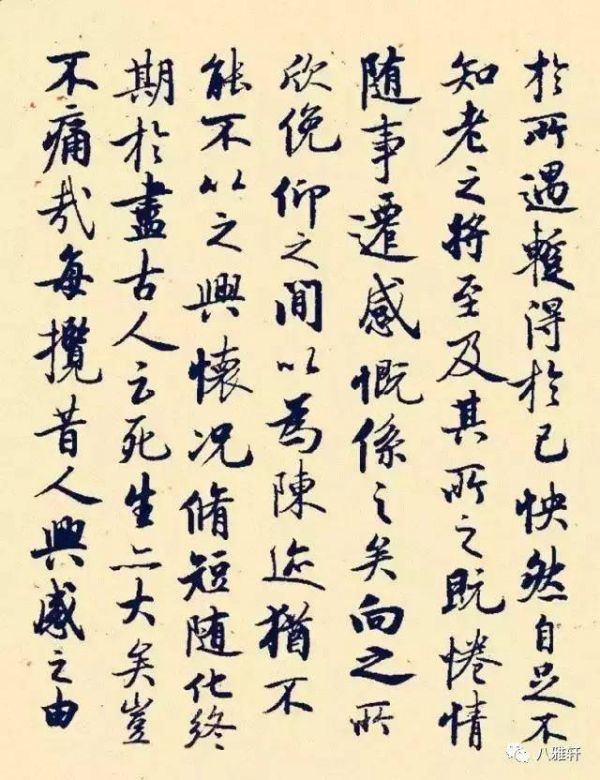 於所遇暫得於己怏然自足不
知老之將至及其所之既惓情
隨事遷感慨係之矣向之所
欣俛仰之間以為陳迹猶不
能不以之興懷況脩短隨化終
期於盡古人云死生亦大矣豈
不痛哉每攬昔人興感之由
八雅轩